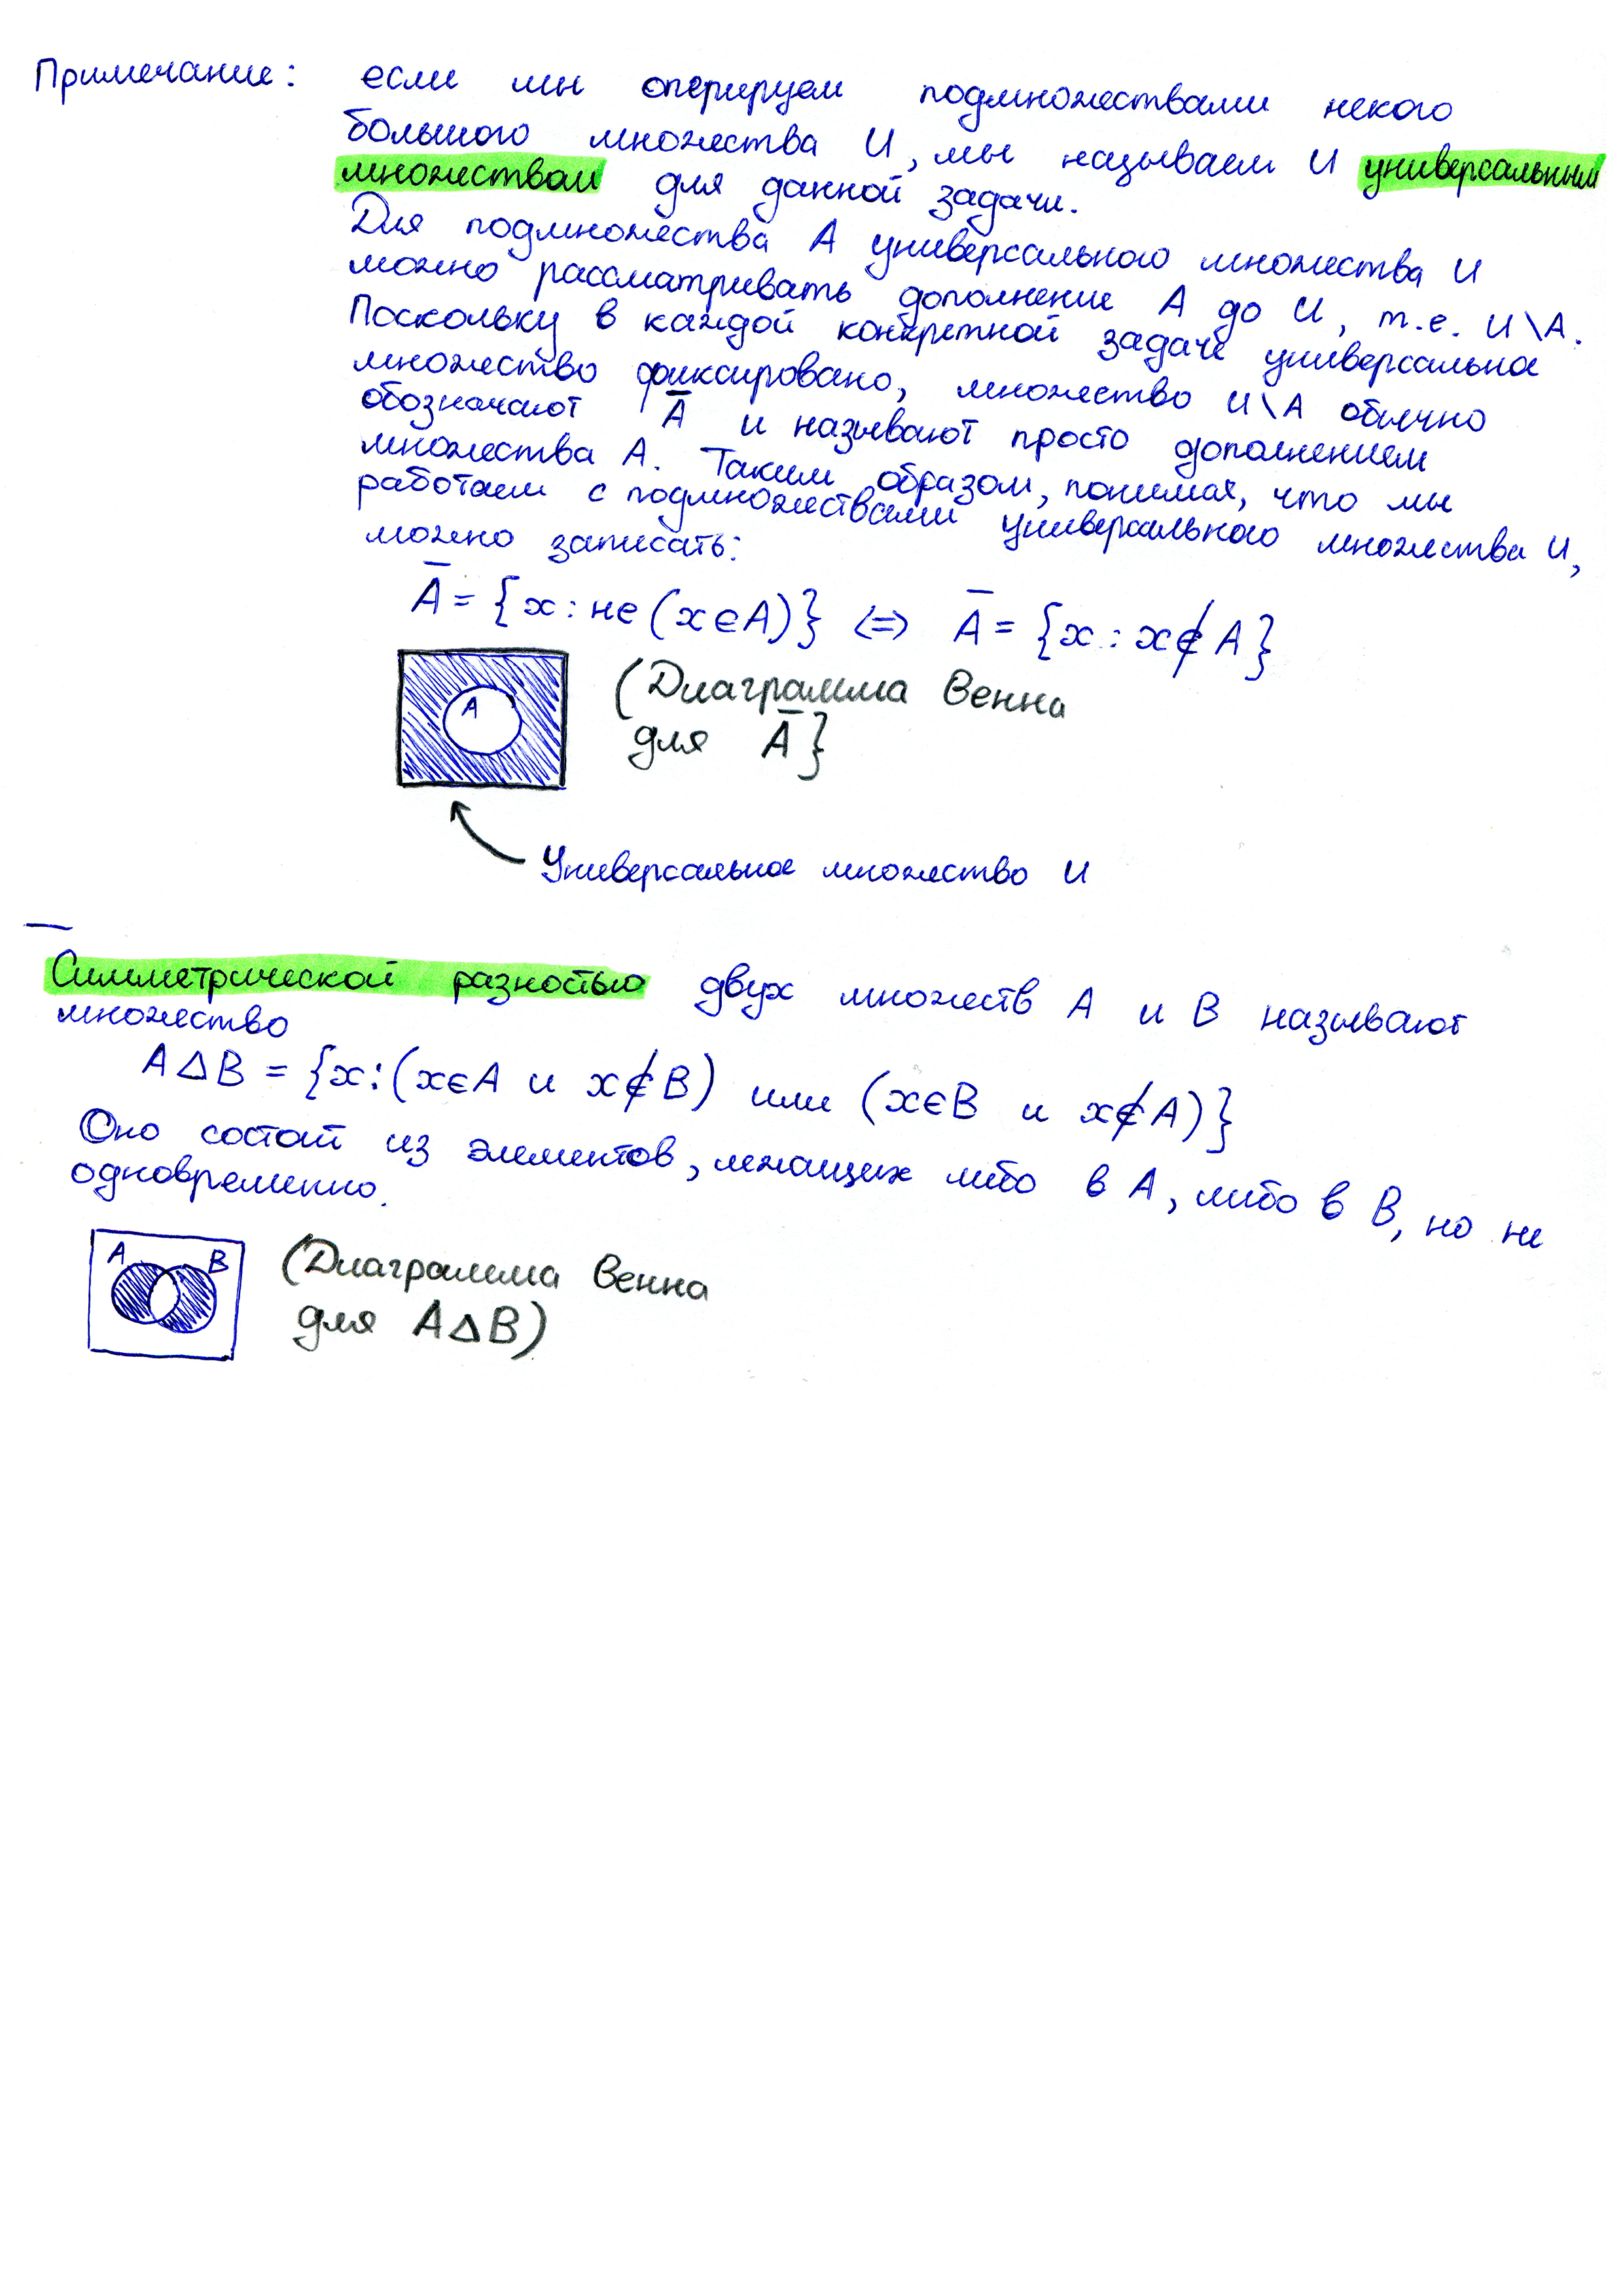 Примечание: если мы оперируем подмножествами некого
большого множества U, мы называем U универсальным
множеством для данной задачи.
Для подмножества A универсального множества U
можно рассматривать дополнение A до U, т.е. U\A.
Поскольку в каждой конкретной задаче универсальное
множество фиксировано, множество U\A обычно
обозначают A̅ и называют просто дополнением
множества A. Таким образом, понимая, что мы
работаем с подмножествами универсального множества U,
можно записать:
A̅ = {x : не (x∈A)} <=> A̅ = {x : x∉A}
A
(Диаграмма Венна
для A̅}
Универсальное множество U
Симметрической разностью двух множеств A и B называют
множество
A Δ B = {x : (x∈A и x∉B) или (x∈B и x∉A)}
Оно состоит из элементов, лежащих либо в A, либо в B, но не
одновременно.
A B
(Диаграмма Венна
для A Δ B)